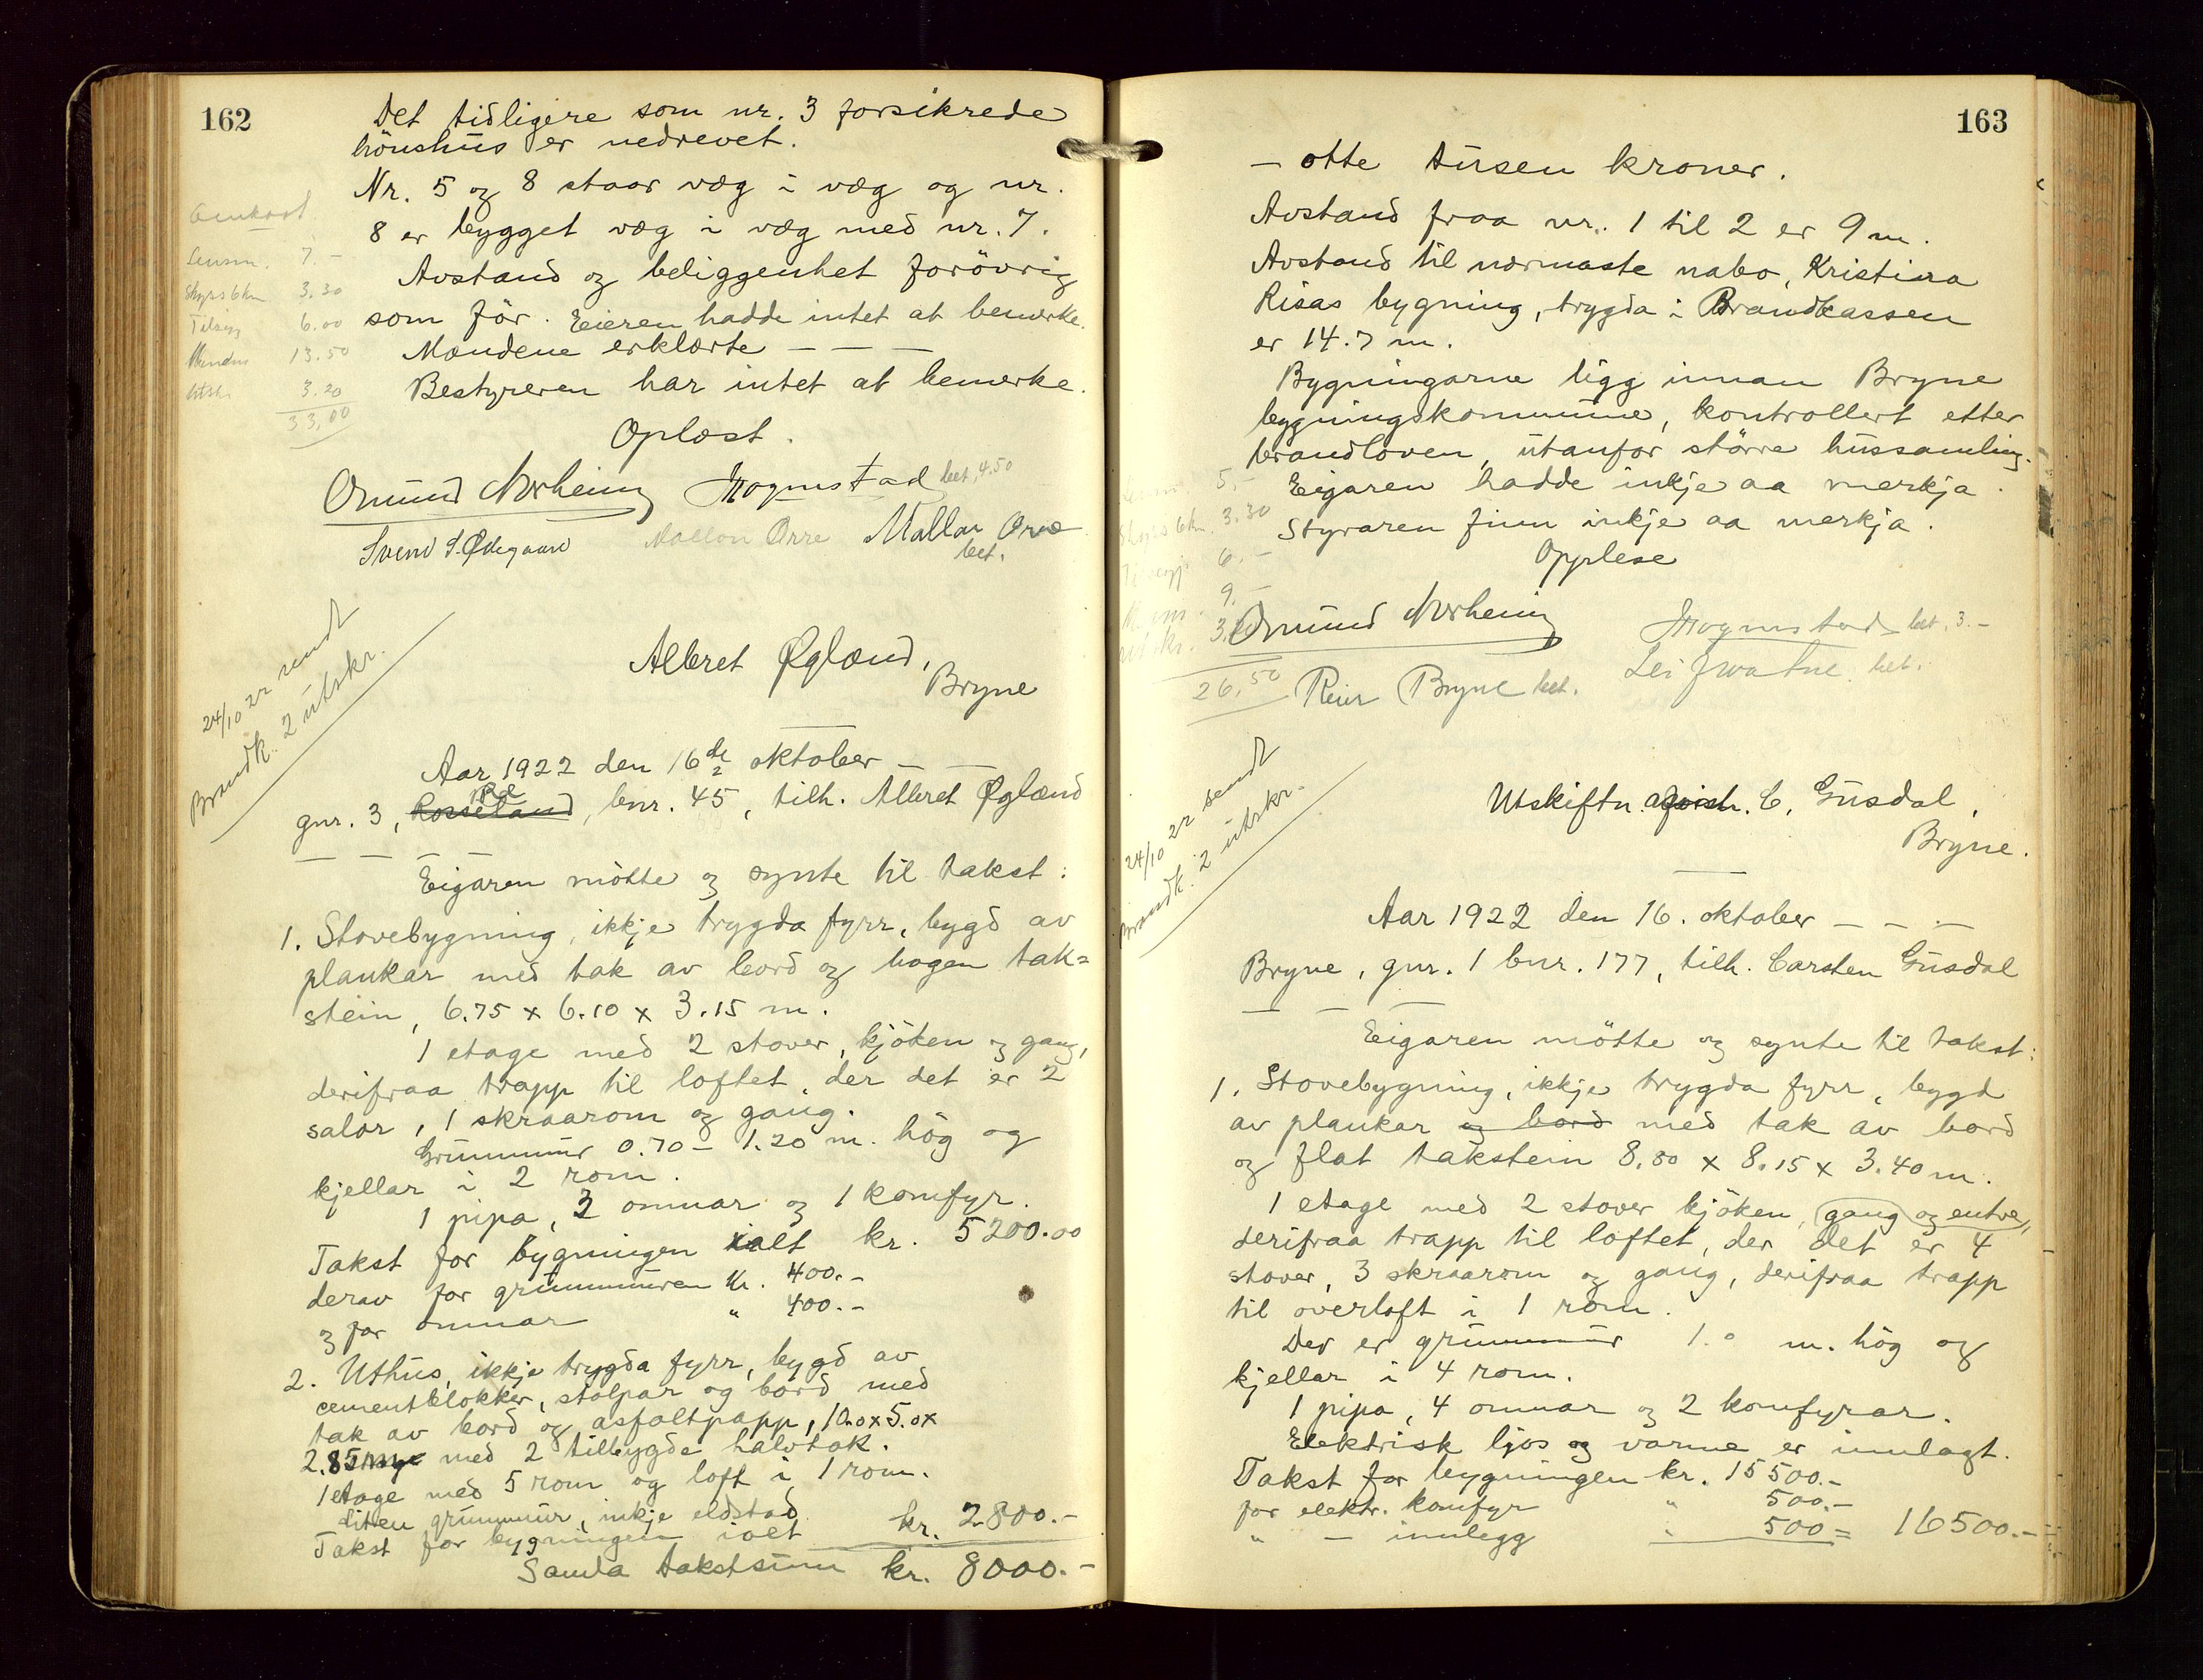 162
Det tidligere som nr. 3 forsikrede
hönshús er nedrevet.
Nr. 5 og 8 staar væg i væg og nr.
8 er bygget væg i væg med nr. 7.
Avstand og beliggenhet forövrig
som för. Eieren hadde intet at bemerke.
Mændene erklærte — — —
Bestyreren har intet at bemerke.
Oplæst.
Omkost.
Lensm. 7.-
Skyss 6 km 3.30
Tillegg 6.00
Mendene 13.50
Utskr. 3.20
33,00
Omund Norheim Mognestad bet. 4.50
Svend S. Ødegaard Mallon Orre Mallon Orre
bet.
24/10 22 sendt
Brandk. 2 útskr.
Albret Øglænd,
Bryne
Aar 1922 den 16de oktober —
gnr. 3, Rosseland, bnr. 45, tilh. Albret Øglænd
— — — —
Eigaren mötte og synte til takst:
1. Stovebygning, ikkje trygda fyrr, bygd av
plankar med tak av bord og hogen tak=
stein, 6.75 x 6.10 x 3.15 m.
1 etage med 2 stover, kjöken og gang,
derifraa trapp til loftet, der det er 2
salar, 1 skraarom og gang.
Grunnmúr 0.70 – 1.20 m. hög og
kjellar i 2 rom.
1 pipa, 2 omnar og 1 komfyr.
Takst for bygningen ialt kr. 5200.00
derav for grúnnmúren kr. 400.-
og for omnar " 400.-
2. Uthús, ikkje trygda fyrr, bygd av
cementblokker, stolpar og bord med
tak av bord og asfaltpapp, 10.0x5.0x
2.85 m med 2 tilbygde halvtak.
1 etage med 5 rom og loft i 1 rom.
Liten grúnnmúr, inkje eldstad
Takst for bygningen ialt kr. 2800.-
Samla takstsúm kr. 8000.-
163
— otte túsen kroner.
Avstand fraa nr. 1 til 2 er 9 m.
Avstand til nærmaste nabo, Kristina
Risas bygning, trygda i Brandkassen
er 14.7 m.
Bygningarne ligg innan Bryne
bygningskommúne, kontrollert etter
brandloven, útanfor större hússamling.
Eigaren hadde inkje aa merkja.
Styraren finn inkje aa merkja.
Opplese
5.-
Skyss 6 km. 3.30
6.-
9.-
utskr. 3.20
26,50
Omund Norheim Mognestad bet. 3.-
Reier Bryne bet. Leif Watne. bet.
24/10 22 sendt
Brandk. 2 útskr.
Utskiftn. C. Gúsdal,
Bryne.
Aar 1922 den 16. oktober — — —
Bryne, gnr. 1 bnr. 177, tilh. Carsten Gúsdal
— — —
Eigaren mötte og synte til takst:
1. Stovebygning, ikkje trygda fyrr, bygd
av plankar og bord med tak av bord
og flat takstein 8.80 x 8.15 x 3.40 m.
1 etage med 2 stover kjöken, gang og entre,
derifraa trapp til loftet, der det er 4
stover, 3 skraarom og gang, derifraa trapp
til overloft i 1 rom.
Der er grúnnmúr 1.0 m. hög og
kjellar i 4 rom.
1 pipa, 4 omnar og 2 komfyrar.
Elektrisk ljos og varme er innlagt.
Takst for bygningen kr. 15500.-
for elektr. komfyr " 500.-
" — innlegg " 500 = 16500.-